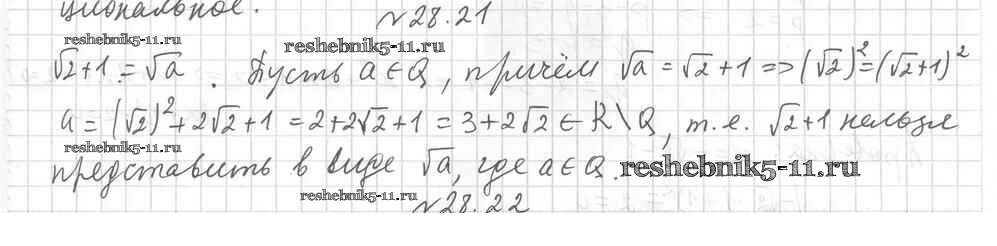 циональное.
№28.21
reshebnik5-11.ru
reshebnik5-11.ru
√2+1=√a. Пусть a∈Q, причём √a=√2+1=>(√2)²=(√2+1)²
a=(√2)²+2√2+1=2+2√2+1=3+2√2∈R\Q, т.е. √2+1 нельзя
reshebnik5-11.ru
представить в виде √a, где a∈Q.
reshebnik5-11.ru
reshebnik5-11.ru
№28.22